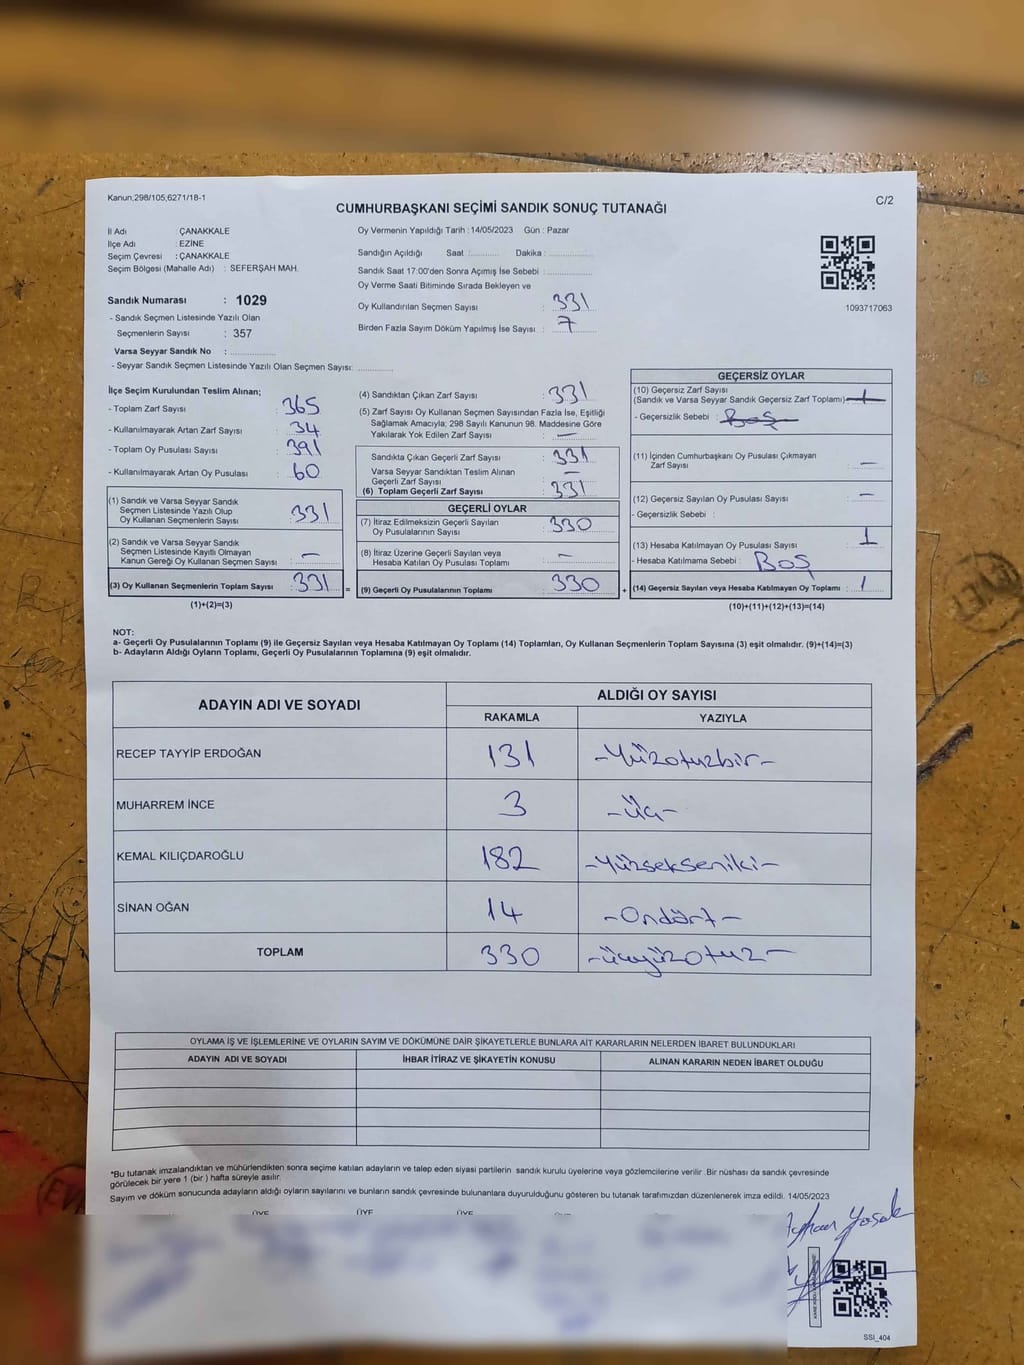 Kanun;298/105;6271/18-1
C/2
CUMHURBAŞKANI SEÇİMİ SANDIK SONUÇ TUTANAĞI
İl Adı : ÇANAKKALE
İlçe Adı : EZİNE
Seçim Çevresi : ÇANAKKALE
Seçim Bölgesi (Mahalle Adı) : SEFERŞAH MAH.
Sandık Numarası : 1029
- Sandık Seçmen Listesinde Yazılı Olan
Seçmenlerin Sayısı : 357
Varsa Seyyar Sandık No :
- Seyyar Sandık Seçmen Listesinde Yazılı Olan Seçmen Sayısı:
Oy Vermenin Yapıldığı Tarih :14/05/2023 Gün : Pazar
Sandığın Açıldığı Saat : Dakika :
Sandık Saat 17:00'den Sonra Açımış İse Sebebi :
Oy Verme Saati Bitiminde Sırada Bekleyen ve
Oy Kullandırılan Seçmen Sayısı : 331
Birden Fazla Sayım Döküm Yapılmış İse Sayısı : 7
1093717063
İlçe Seçim Kurulundan Teslim Alınan;
- Toplam Zarf Sayısı : 365
- Kullanılmayarak Artan Zarf Sayısı : 34
- Toplam Oy Pusulası Sayısı : 391
- Kullanılmayarak Artan Oy Pusulası : 60
(1) Sandık ve Varsa Seyyar Sandık
Seçmen Listesinde Yazılı Olup
Oy Kullanan Seçmenlerin Sayısı : 331
(2) Sandık ve Varsa Seyyar Sandık
Seçmen Listesinde Kayıtlı Olmayan
Kanun Gereği Oy Kullanan Seçmen Sayısı : —
(3) Oy Kullanan Seçmenlerin Toplam Sayısı : 331
(1)+(2)=(3)
(4) Sandıktan Çıkan Zarf Sayısı : 331
(5) Zarf Sayısı Oy Kullanan Seçmen Sayısından Fazla İse, Eşitliği
Sağlamak Amacıyla; 298 Sayılı Kanunun 98. Maddesine Göre
Yakılarak Yok Edilen Zarf Sayısı : —
Sandıkta Çıkan Geçerli Zarf Sayısı : 331
Varsa Seyyar Sandıktan Teslim Alınan
Geçerli Zarf Sayısı : —
(6) Toplam Geçerli Zarf Sayısı : 331
GEÇERLİ OYLAR
(7) İtiraz Edilmeksizin Geçerli Sayılan
Oy Pusulalarının Sayısı : 330
(8) İtiraz Üzerine Geçerli Sayılan veya
Hesaba Katılan Oy Pusulası Toplamı : —
= (9) Geçerli Oy Pusulalarının Toplamı : 330
GEÇERSİZ OYLAR
(10) Geçersiz Zarf Sayısı
(Sandık ve Varsa Seyyar Sandık Geçersiz Zarf Toplamı) 1
- Geçersizlik Sebebi : Boş
(11) İçinden Cumhurbaşkanı Oy Pusulası Çıkmayan
Zarf Sayısı : —
(12) Geçersiz Sayılan Oy Pusulası Sayısı : —
- Geçersizlik Sebebi :
(13) Hesaba Katılmayan Oy Pusulası Sayısı : 1
- Hesaba Katılmama Sebebi : Boş
+ (14) Geçersiz Sayılan veya Hesaba Katılmayan Oy Toplamı : 1
(10)+(11)+(12)+(13)=(14)
NOT:
a- Geçerli Oy Pusulalarının Toplamı (9) ile Geçersiz Sayılan veya Hesaba Katılmayan Oy Toplamı (14) Toplamları, Oy Kullanan Seçmenlerin Toplam Sayısına (3) eşit olmalıdır. (9)+(14)=(3)
b- Adayların Aldığı Oyların Toplamı, Geçerli Oy Pusulalarının Toplamına (9) eşit olmalıdır.
ADAYIN ADI VE SOYADI
ALDIĞI OY SAYISI
RAKAMLA YAZIYLA
RECEP TAYYİP ERDOĞAN 131 -Yüzotuzbir-
MUHARREM İNCE 3 -Üç-
KEMAL KILIÇDAROĞLU 182 -Yüzsekseniki-
SİNAN OĞAN 14 -Ondört-
TOPLAM 330 -üçyüzotuz-
OYLAMA İŞ VE İŞLEMLERİNE VE OYLARIN SAYIM VE DÖKÜMÜNE DAİR ŞİKAYETLERLE BUNLARA AİT KARARLARIN NELERDEN İBARET BULUNDUKLARI
ADAYIN ADI VE SOYADI İHBAR İTİRAZ VE ŞİKAYETİN KONUSU ALINAN KARARIN NEDEN İBARET OLDUĞU
*Bu tutanak imzalandıktan ve mühürlendikten sonra seçime katılan adayların ve talep eden siyasi partilerin sandık kurulu üyelerine veya gözlemcilerine verilir. Bir nüshası da sandık çevresinde
görülecek bir yere 1 (bir ) hafta süreyle asılır.
Sayım ve döküm sonucunda adayların aldığı oyların sayılarını ve bunların sandık çevresinde bulunanlara duyurulduğunu gösteren bu tutanak tarafımızdan düzenlenerek imza edildi. 14/05/2023
ÜYE ÜYE ÜYE
SSI_404